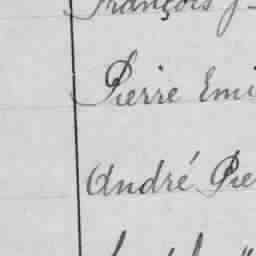 François J
Pierre Emi
André Pie